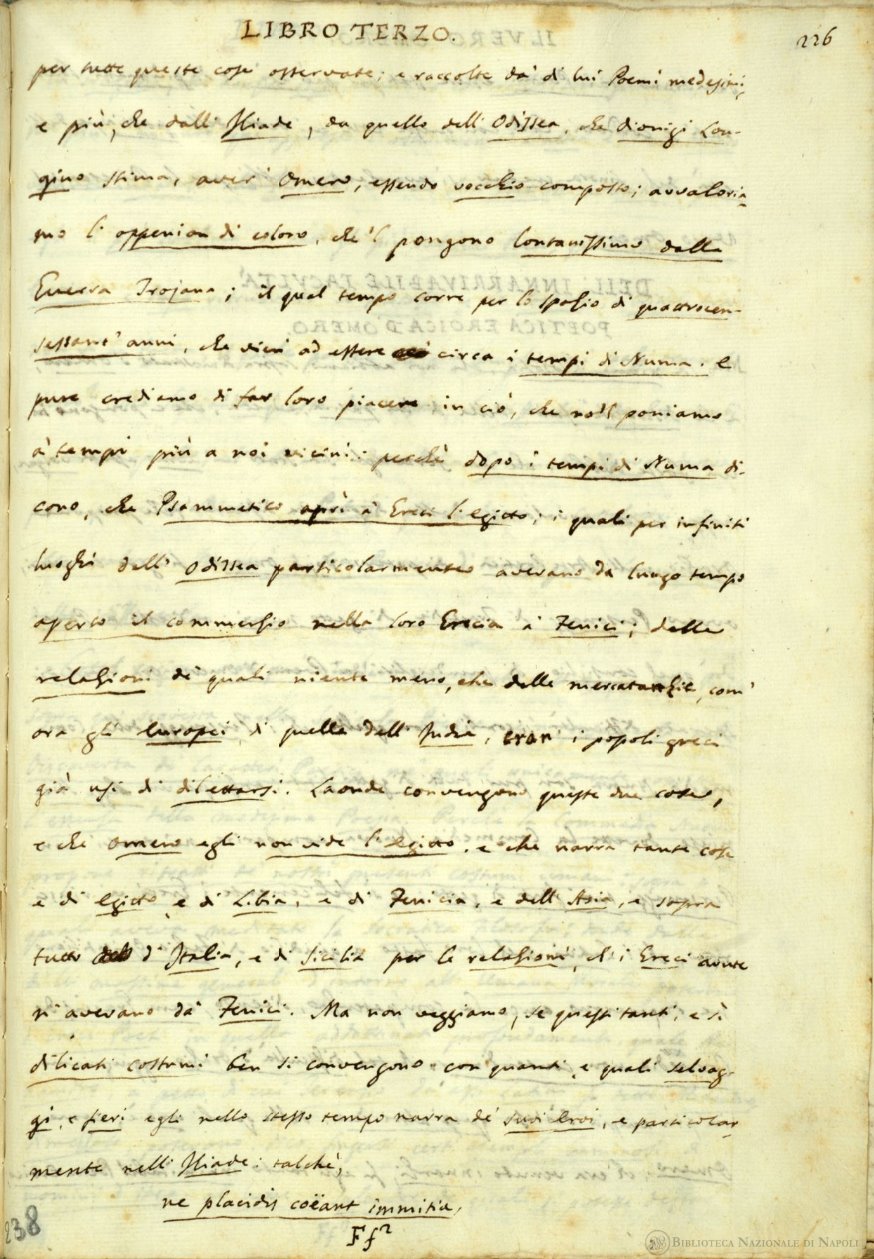 LIBRO TERZO.
226
per tutte queste cose osservate; e raccolte da' di lui Poemi medesimi;
e più, che dall' Iliade, da quello dell' Odissea, che Dionigi Lon-
gino stima, aver' Omero, essendo vecchio composto; avvaloria-
mo l' oppenion di coloro, che 'l pongono lontanissimo dalla
Guerra Trojana; il qual tempo corre per lo spazio di quattrocen-
sessant' anni, che vien' ad essere circa i tempi di Numa. e
pure crediamo di far loro piacere in ciò, che no'l poniamo
a' tempi più a noi vicini: perchè dopo i tempi di Numa di-
cono, che Psammetico aprì a' Greci l' Egitto; i quali per infiniti
luoghi dell' Odissea particolarmente avevano da lungo tempo
aperto il commerzio nella loro Grecia a' Fenici; delle
relazioni de' quali niente meno, che delle mercatanzie, com'
ora gli Europei di quelle dell' Indie, eran' i popoli greci
già usi di dilettarsi. Laonde convengono queste due cose,
e che Omero egli non vide l' Egitto, e che narra tante cose
e di Egitto, e di Libia, e di Fenicia, e dell' Asia, e sopra
tutto d' Italia, e di Sicilia per le relazioni, ch' i Greci avute
n' avevano da' Fenici. Ma non veggiamo, se questi tanti, e sì
dilicati costumi ben si convengono con quanti, e quali selvag-
gi, e fieri egli nello stesso tempo narra de' suoi Eroi, e particolar-
mente nell' Iliade: talchè,
ne placidis coëant immitia,
Ff2
238
BIBLIOTECA NAZIONALE DI NAPOLI